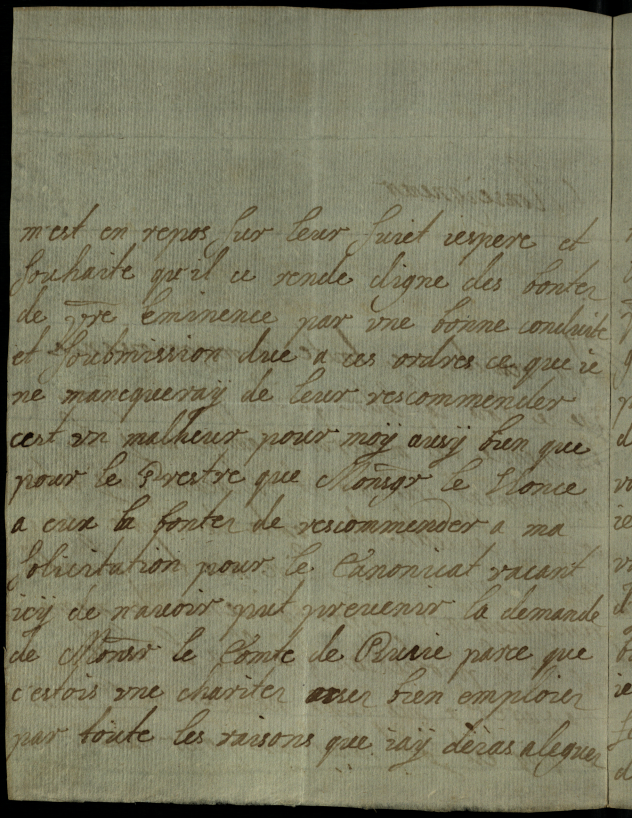 m'est en repos sur leur suiet iespere et
souhaite qu'il ce rende digne des bontez
de vre eminence par vne bonne conduite
et soubmission due a ces ordres ce que ie
ne mancqueraÿ de leur rescommender
cest vn malheur pour moÿ ausÿ bien que
pour le Prestre que Monsgr le Nonce
a eux la bontez de rescommender a ma
solicitation pour le Canonicat vacant
icÿ de n'auoir put preuenir la demande
de Monsr le Comte de
parce que
c'estois vne charitez asser bien emploiez
par toute les raisons que iaÿ deias aleguez